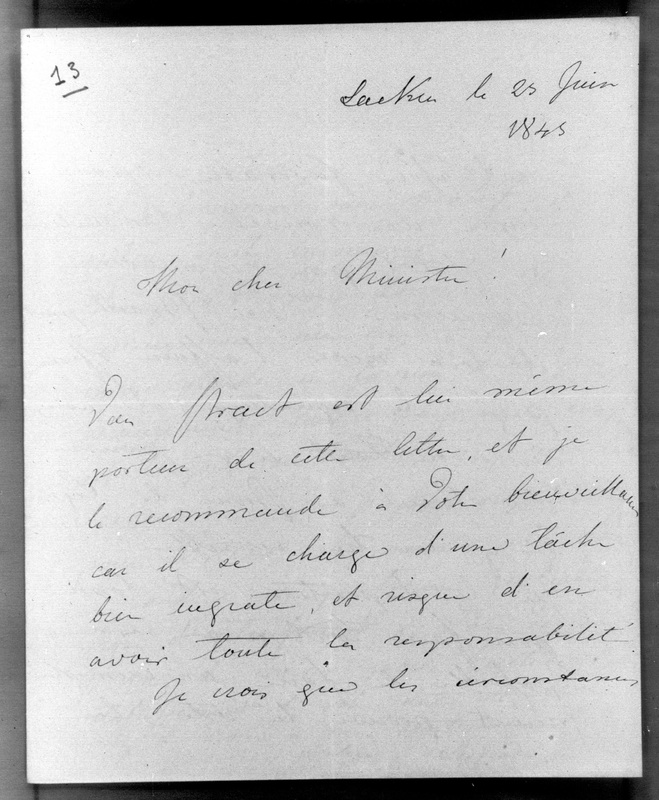 13
Laeken le 25 Juin
1845
Mon cher Ministre !
Van Praet est lui même
porteur de cette lettre, et je
le recommande à Votre bienveillance
car il se charge d'une tâche
bien ingrate, et risque d'en
avoir toute la responsabilité.
Je crois que les circonstances